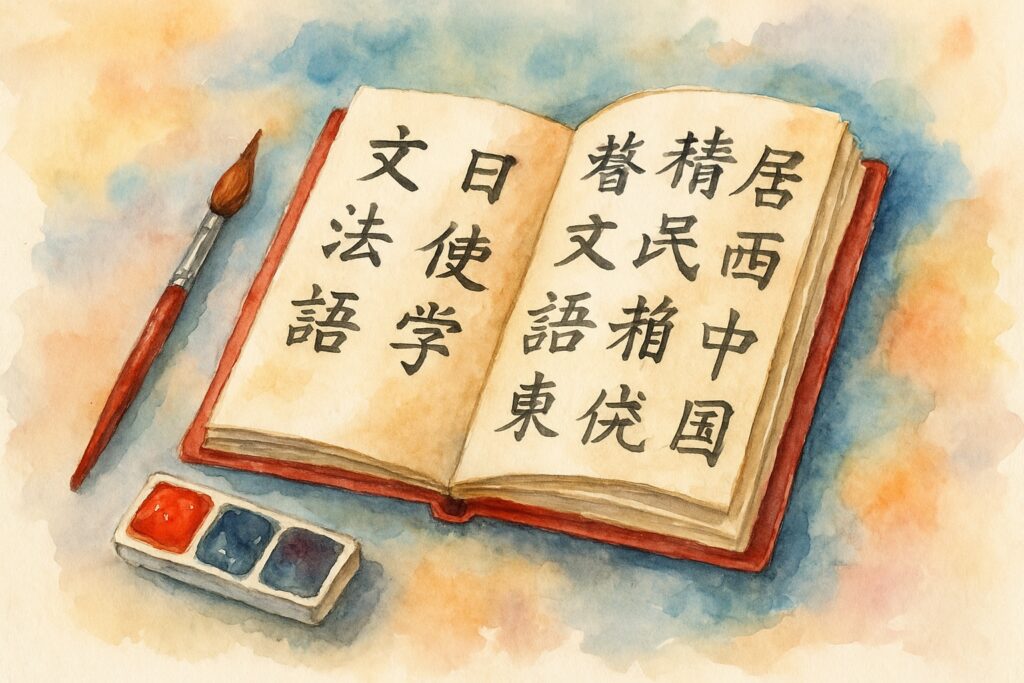 居西中国
精民
文語東
日使学
文法語